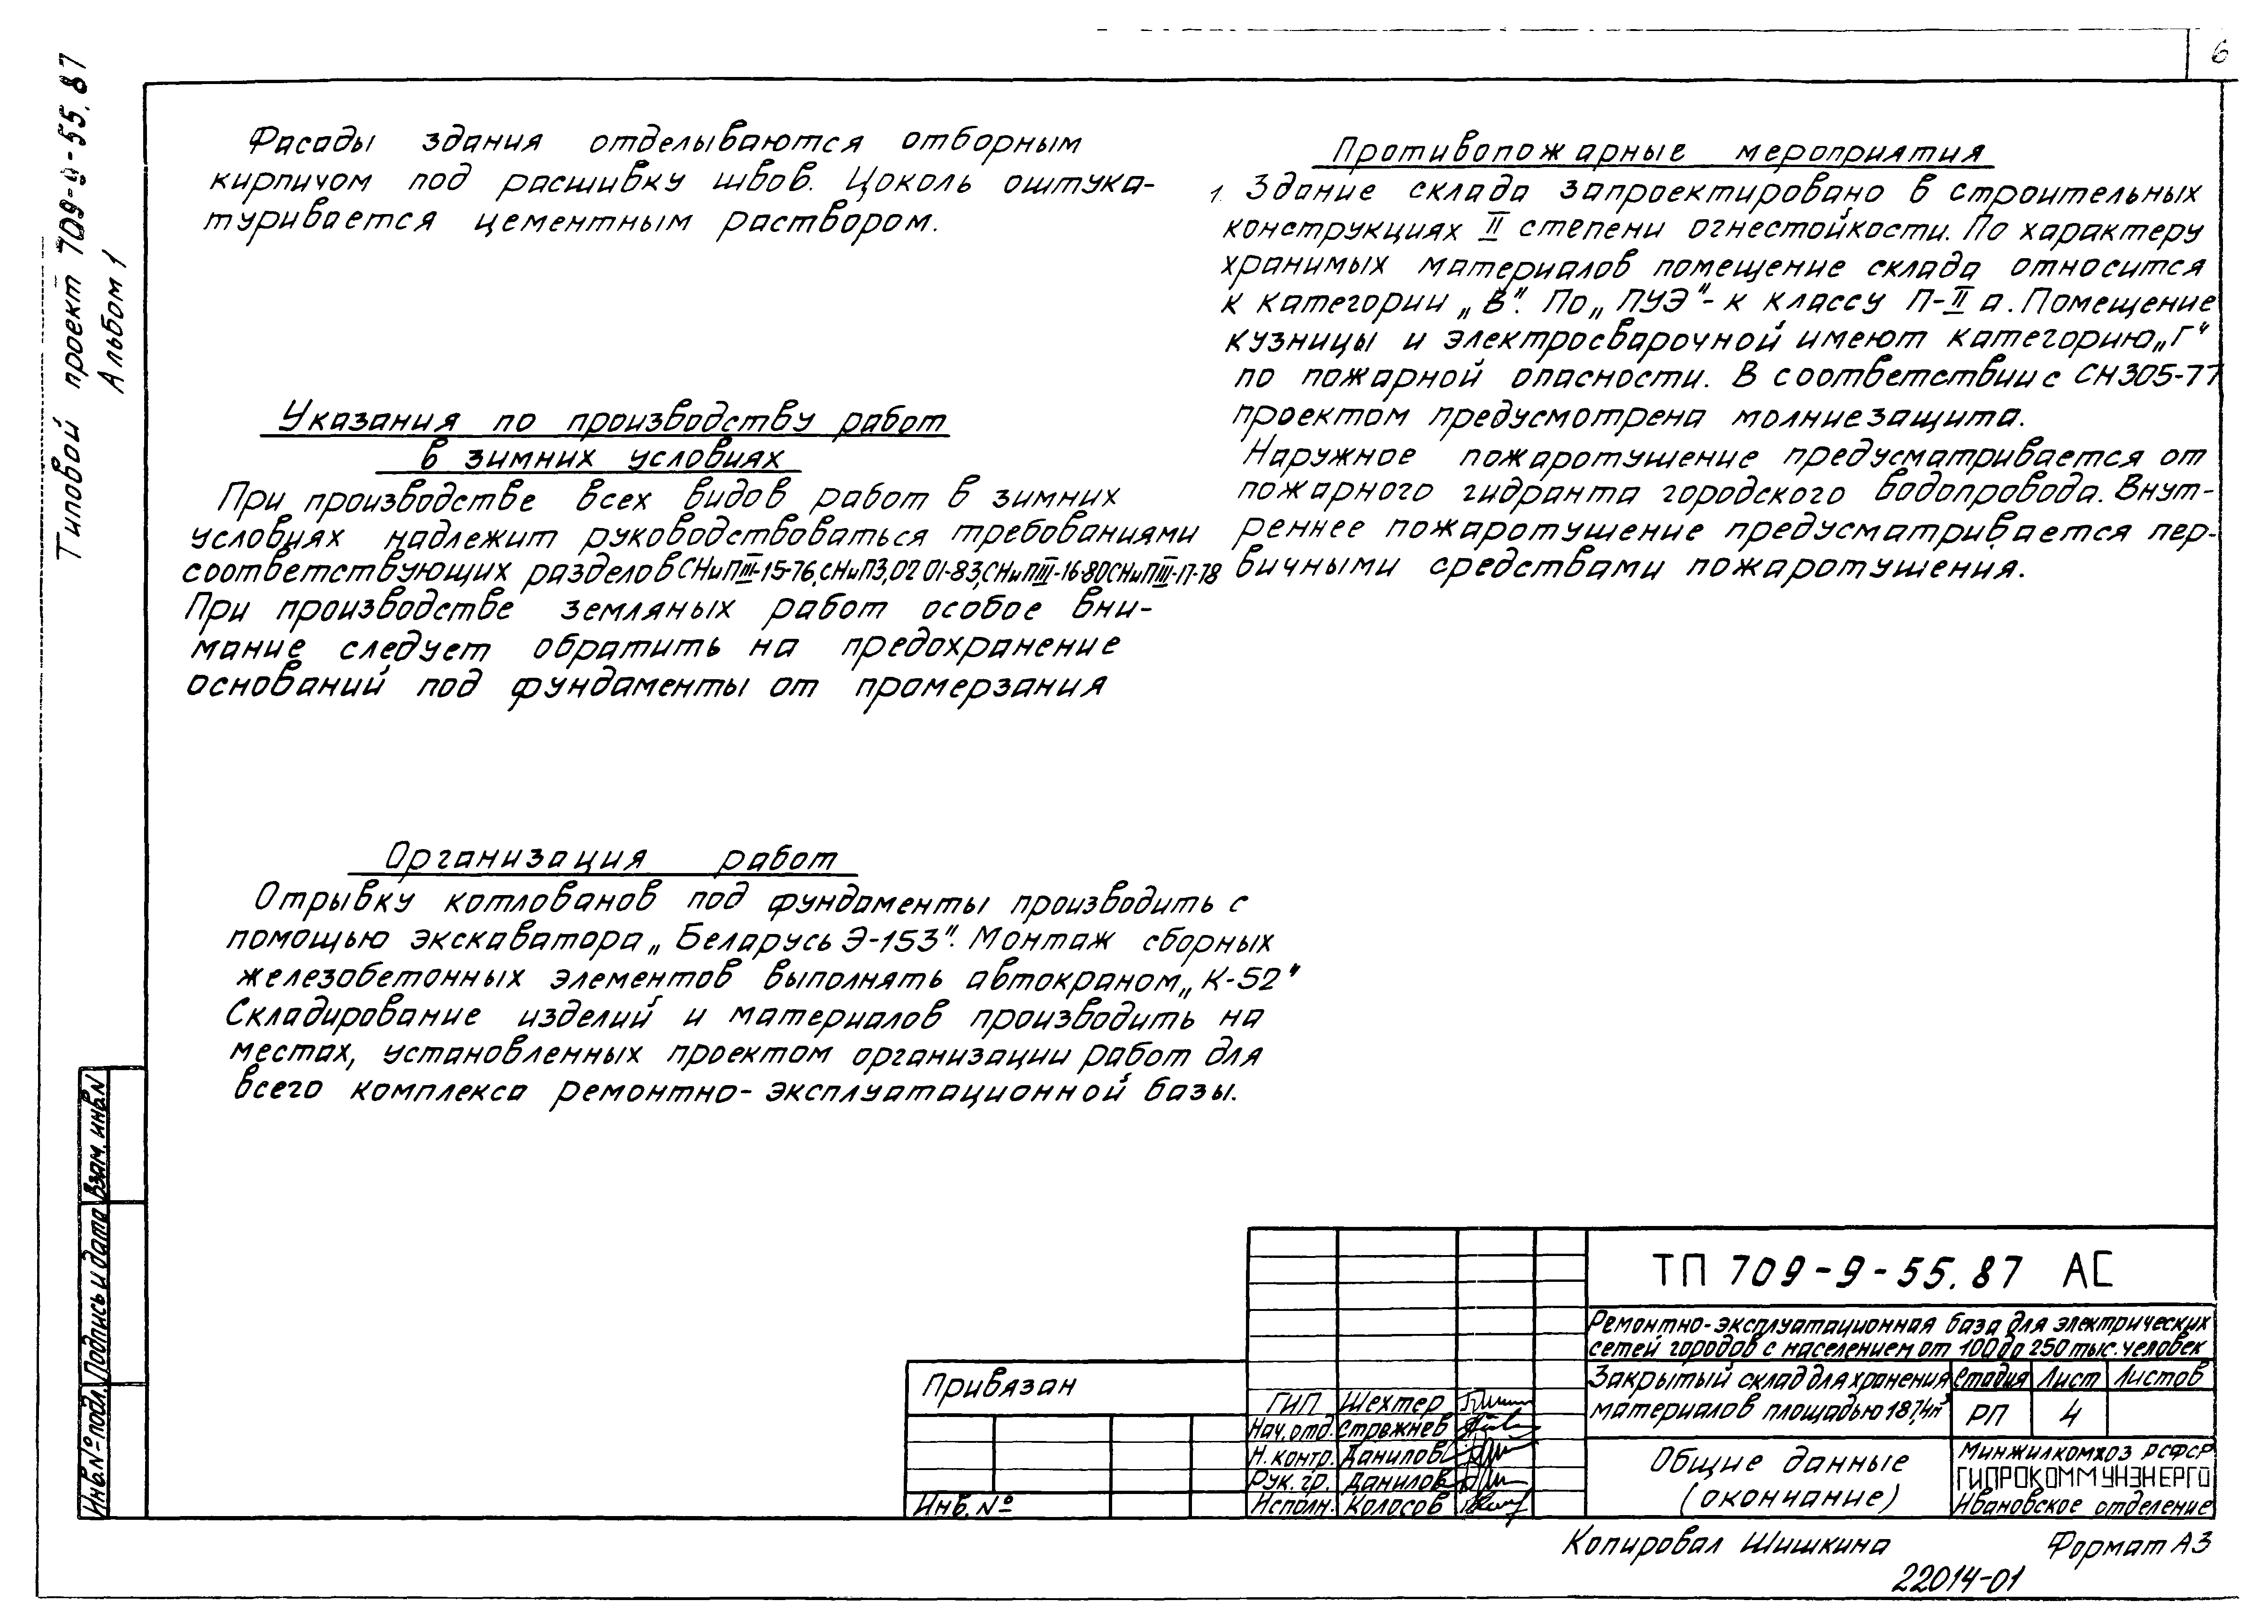 6
Типовой проект 709-9-55.87
Альбом 1
Фасады здания отделываются отборным
кирпичом под расшивку швов. Цоколь оштука-
туривается цементным раствором.
Указания по производству работ
в зимних условиях
При производстве всех видов работ в зимних
условиях надлежит руководствоваться требованиями
соответствующих разделов СНиПIII-15-76, СНиП3.02 01-83, СНиПIII-16-80 СНиПIII-17-78
При производстве земляных работ особое вни-
мание следует обратить на предохранение
оснований под фундаменты от промерзания
Организация работ
Отрывку котлованов под фундаменты производить с
помощью экскаватора „Беларусь Э-153". Монтаж сборных
железобетонных элементов выполнять автокраном „К-52"
Складирование изделий и материалов производить на
местах, установленных проектом организации работ для
всего комплекса ремонтно-эксплуатационной базы.
Противопожарные мероприятия
1. Здание склада запроектировано в строительных
конструкциях II степени огнестойкости. По характеру
хранимых материалов помещение склада относится
к категории „В". По „ПУЭ"- к классу П-II а. Помещение
кузницы и электросварочной имеют категорию „Г"
по пожарной опасности. В соответствии с СН305-77
проектом предусмотрена молниезащита.
Наружное пожаротушение предусматривается от
пожарного гидранта городского водопровода. Внут-
реннее пожаротушение предусматривается пер-
вичными средствами пожаротушения.
Взам. инв. N
Подпись и дата
Инв. № подл.
Привязан
Инв. №
ГИП Шехтер
Нач. отд. Стрежнев
Н. контр. Данилов
Рук. гр. Данилов
Исполн. Колосов
ТП 709-9-55.87 АС
Ремонтно-эксплуатационная база для электрических
сетей городов с населением от 100 до 250 тыс. человек
Закрытый склад для хранения
материалов площадью 187,4м²
Стадия Лист Листов
РП 4
Общие данные
(окончание)
Минжилкомхоз РСФСР
ГИПРОКОММУНЭНЕРГО
Ивановское отделение
Копировал Шишкина Формат А3
22014-01